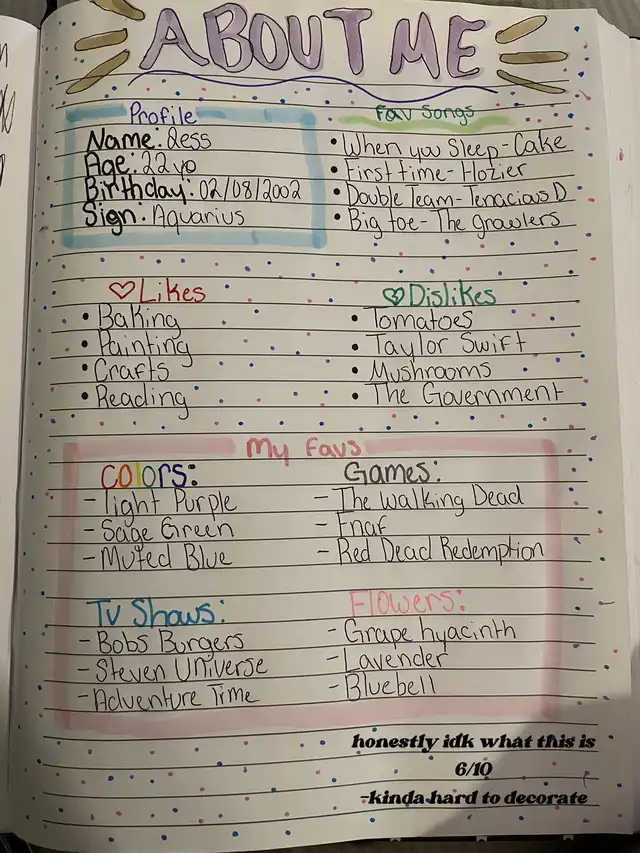 ABOUT ME
Profile
Name: Jess
Age: 22 yo
Birthday: 02/08/2002
Sign: Aquarius
Fav Songs
• When you Sleep - Cake
• First time - Hozier
• Double Team - Tenacious D
• Big toe - The growlers
♡ Likes
• Baking
• Painting
• Crafts
• Reading
Dislikes
• Tomatoes
• Taylor Swift
• Mushrooms
• The Government
My Favs
Colors:
- Light Purple
- Sage Green
- Muted Blue
Games:
- The Walking Dead
- Fnaf
- Red Dead Redemption
Tv Shows:
- Bobs Burgers
- Steven Universe
- Adventure Time
Flowers:
- Grape hyacinth
- Lavender
- Bluebell
honestly idk what this is
6/10
-kinda hard to decorate